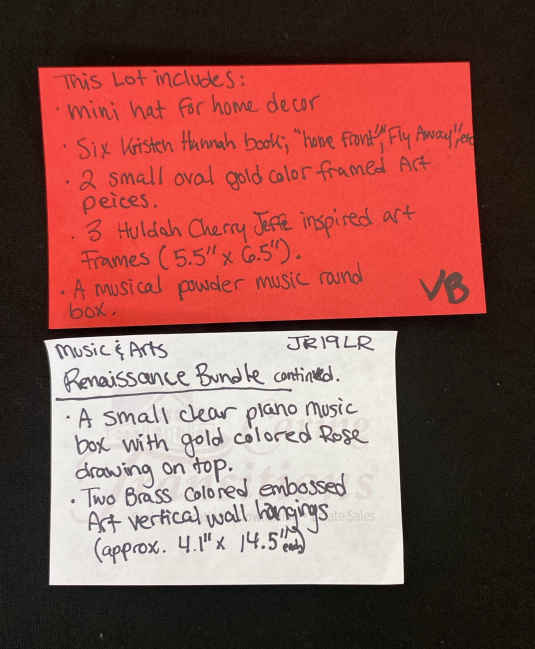 This Lot includes:
· mini hat for home decor
· Six Kristen Hannah book; "home front", "Fly Away", etc
· 2 small oval gold color framed Art
peices.
· 3 Huldah Cherry Jeffe inspired art
Frames (5.5" x 6.5").
· A musical powder music round
box.
VB
Music & Arts JR19LR
Renaissance Bundle continued.
· A small clear piano music
box with gold colored Rose
drawing on top.
· Two Brass colored embossed
Art vertical wall hangings
(approx. 4.1" x 14.5" each)
Caring
Transitions
ate Sales